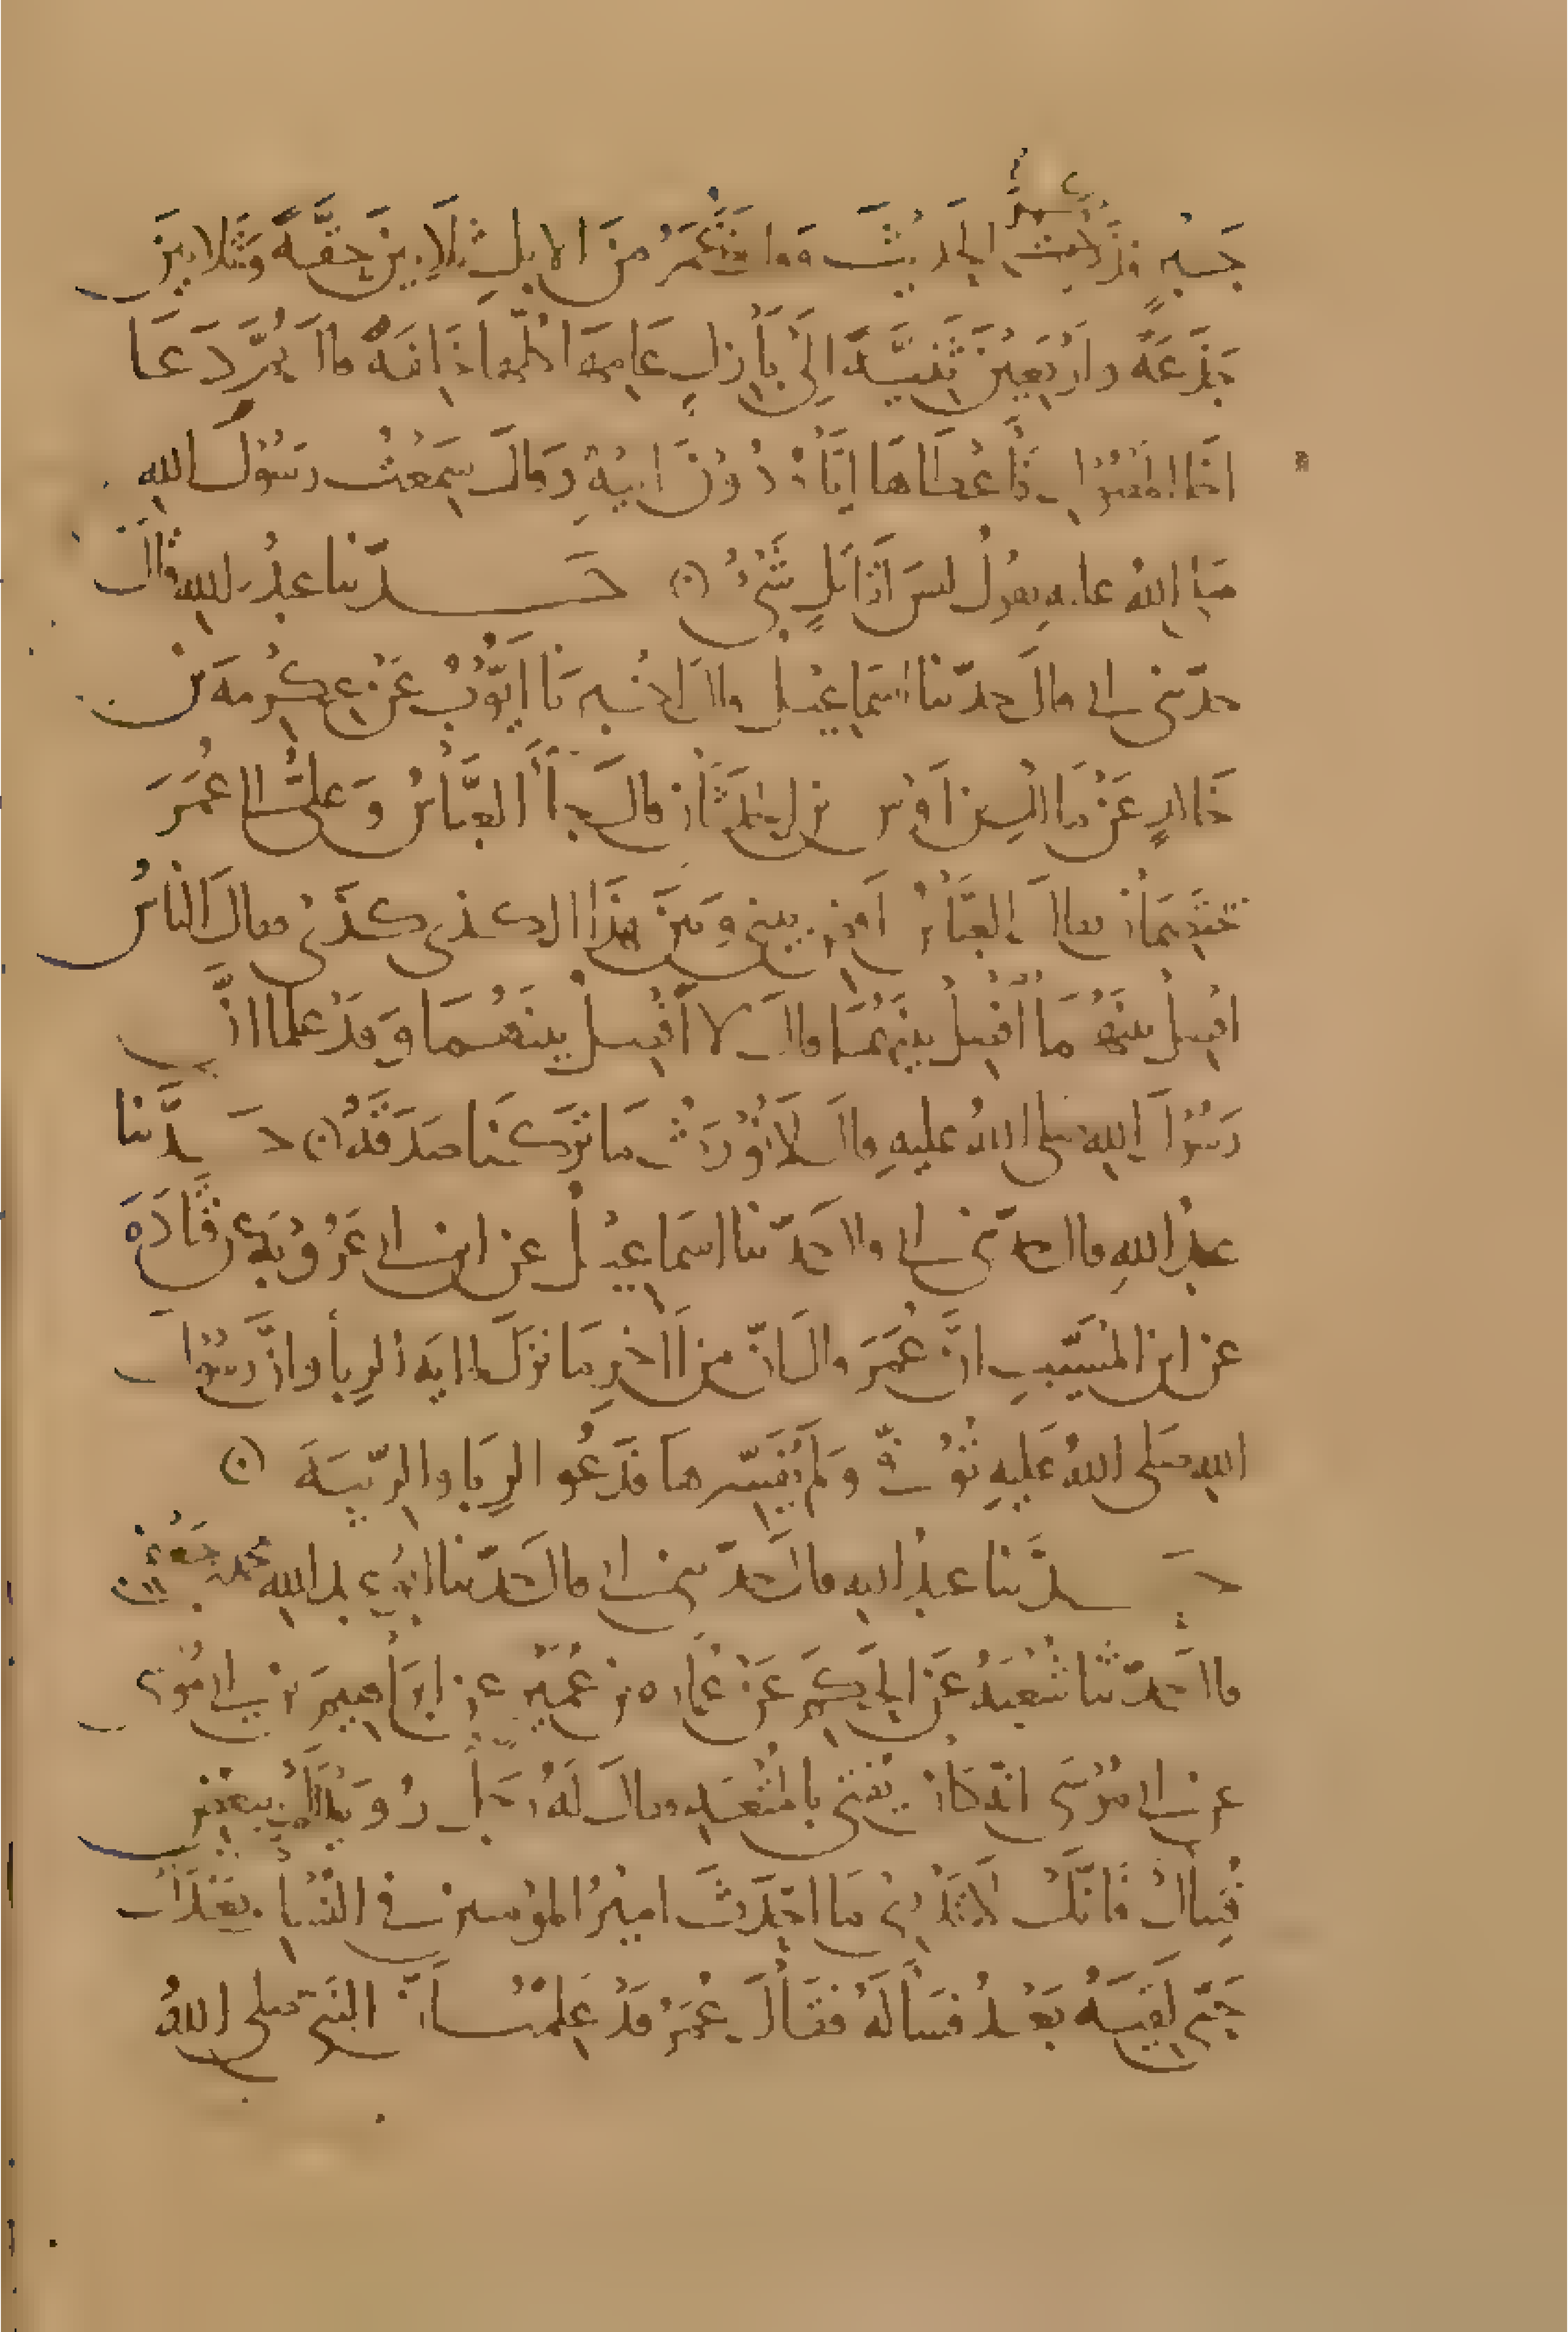 جَنْبِهِ فذَكَرَ الحَديثَ وَقال وأخذ عُمَرُ مِنَ الابِلِ ثَلَاثِينَ حِقَّةً وَثَلاثِينَ
جَذَعَةً وارْبَعِينَ ثَنِيَّةً الى بَازِلِ عَامِهَا كلّها خَلِفَةٌ قالَ ثُمَّ دَعَا
اخَا المقْتُولِ فَأعْطاهَا إيَّاهُ دُوْنَ ابِيْهِ وَقالَ سَمِعْتُ رَسُوْلَ اللهِ
صَلى اللهُ عليهِ يقولُ ليسَ لقاتِلٍ شَىْءٌ ۞ حَدّثنا عبدُ اللهِ قالَ
حدّثني ابي قالَ حدّثنا اسمَاعِيْلُ قالَ اخبرَنا ايُّوْبُ عَنْ عِكْرِمَةَ بْنِ
خَالدٍ عَنْ مَالكِ بنِ اَوْسِ بنِ الحَدَثَانِ قالَ جَاءَ العَبَّاسُ وَعَلىٌّ الى عُمَرَ
يَخْتَصِمَانِ فقالَ العَبَّاسُ اقْضِ بيني وَبَيْنَ هذَا الكذى كذَى فقالَ النَّاسُ
افْصِلْ بينَهُمَا افْصِلْ بينَهُمَا قالَ لا افْصِلُ بينهُمَا قَدْ عَلما انَّ
رَسُوْلَ اللهِ صلى اللهُ عليهِ قالَ لا نُوْرَثُ مَا تَرَكنَا صَدَقَةٌ ۞ حَدَّثنا
عبدُ اللهِ قالَ حدّثني ابي قالَ حَدّثنا اسمَاعِيْلُ عن ابنِ ابي عَرُوْبَةَ عن قتَادَةَ
عن ابنِ المُسَيَّبِ انَّ عُمَرَ قالَ انّ مِن اخِرِ مَا نَزَلَ ايَةُ الرِّبا وانَّ رَسُوْلَ
اللهِ صَلى اللهُ عَليهِ تُوُفّيَ وَلَمْ يُفَسِّرهَا فدَعُوا الرِّبَا والرِّيبَةَ ۞
حَدَّثنا عبدُ اللهِ قالَ حدّثني ابي قالَ حَدّثنا ابو عبد اللهِ محمد بن جعفر
قالَ حَدّثنا شُعْبَةُ عَنِ الحَكَمِ عَنْ عُمَارةَ بنِ عُمَيْرٍ عن ابرَاهِيمَ بنِ ابي مُوسَى
عن ابي مُوْسَى انّهُ كَانَ يُفتي بالمُتْعَةِ فقالَ لَهُ رَجُلٌ رُوَيْدَكَ بِبَعْضِ
فُتْيَاكَ فَانَّكَ لَا تَدْرِي مَا احْدَثَ امِيْرُ المُؤْمِنينَ في النُّسُكِ بَعْدَكَ
حَتّى لَقِيَهُ بَعْدُ فسَأَلَهُ فقَالَ عُمَرُ قَدْ عَلِمْتُ انّ النبَيّ صلى اللهُ